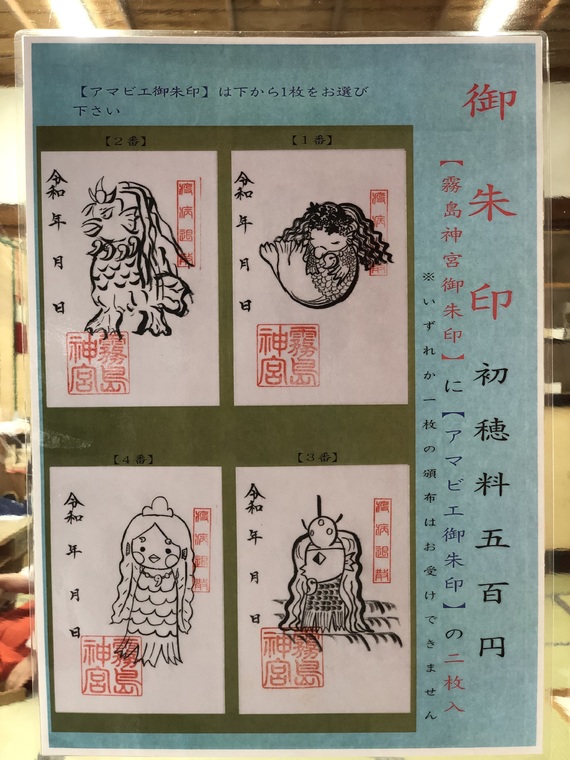 御朱印 初穂料五百円
【霧島神宮御朱印】に【アマビエ御朱印】の二枚入
※いずれか一枚の頒布はお受けできません
【アマビエ御朱印】は下から1枚をお選び
下さい
【1番】
疫病退散
令和 年 月 日
霧島神宮
【2番】
疫病退散
令和 年 月 日
霧島神宮
【3番】
疫病退散
令和 年 月 日
霧島神宮
【4番】
疫病退散
令和 年 月 日
霧島神宮